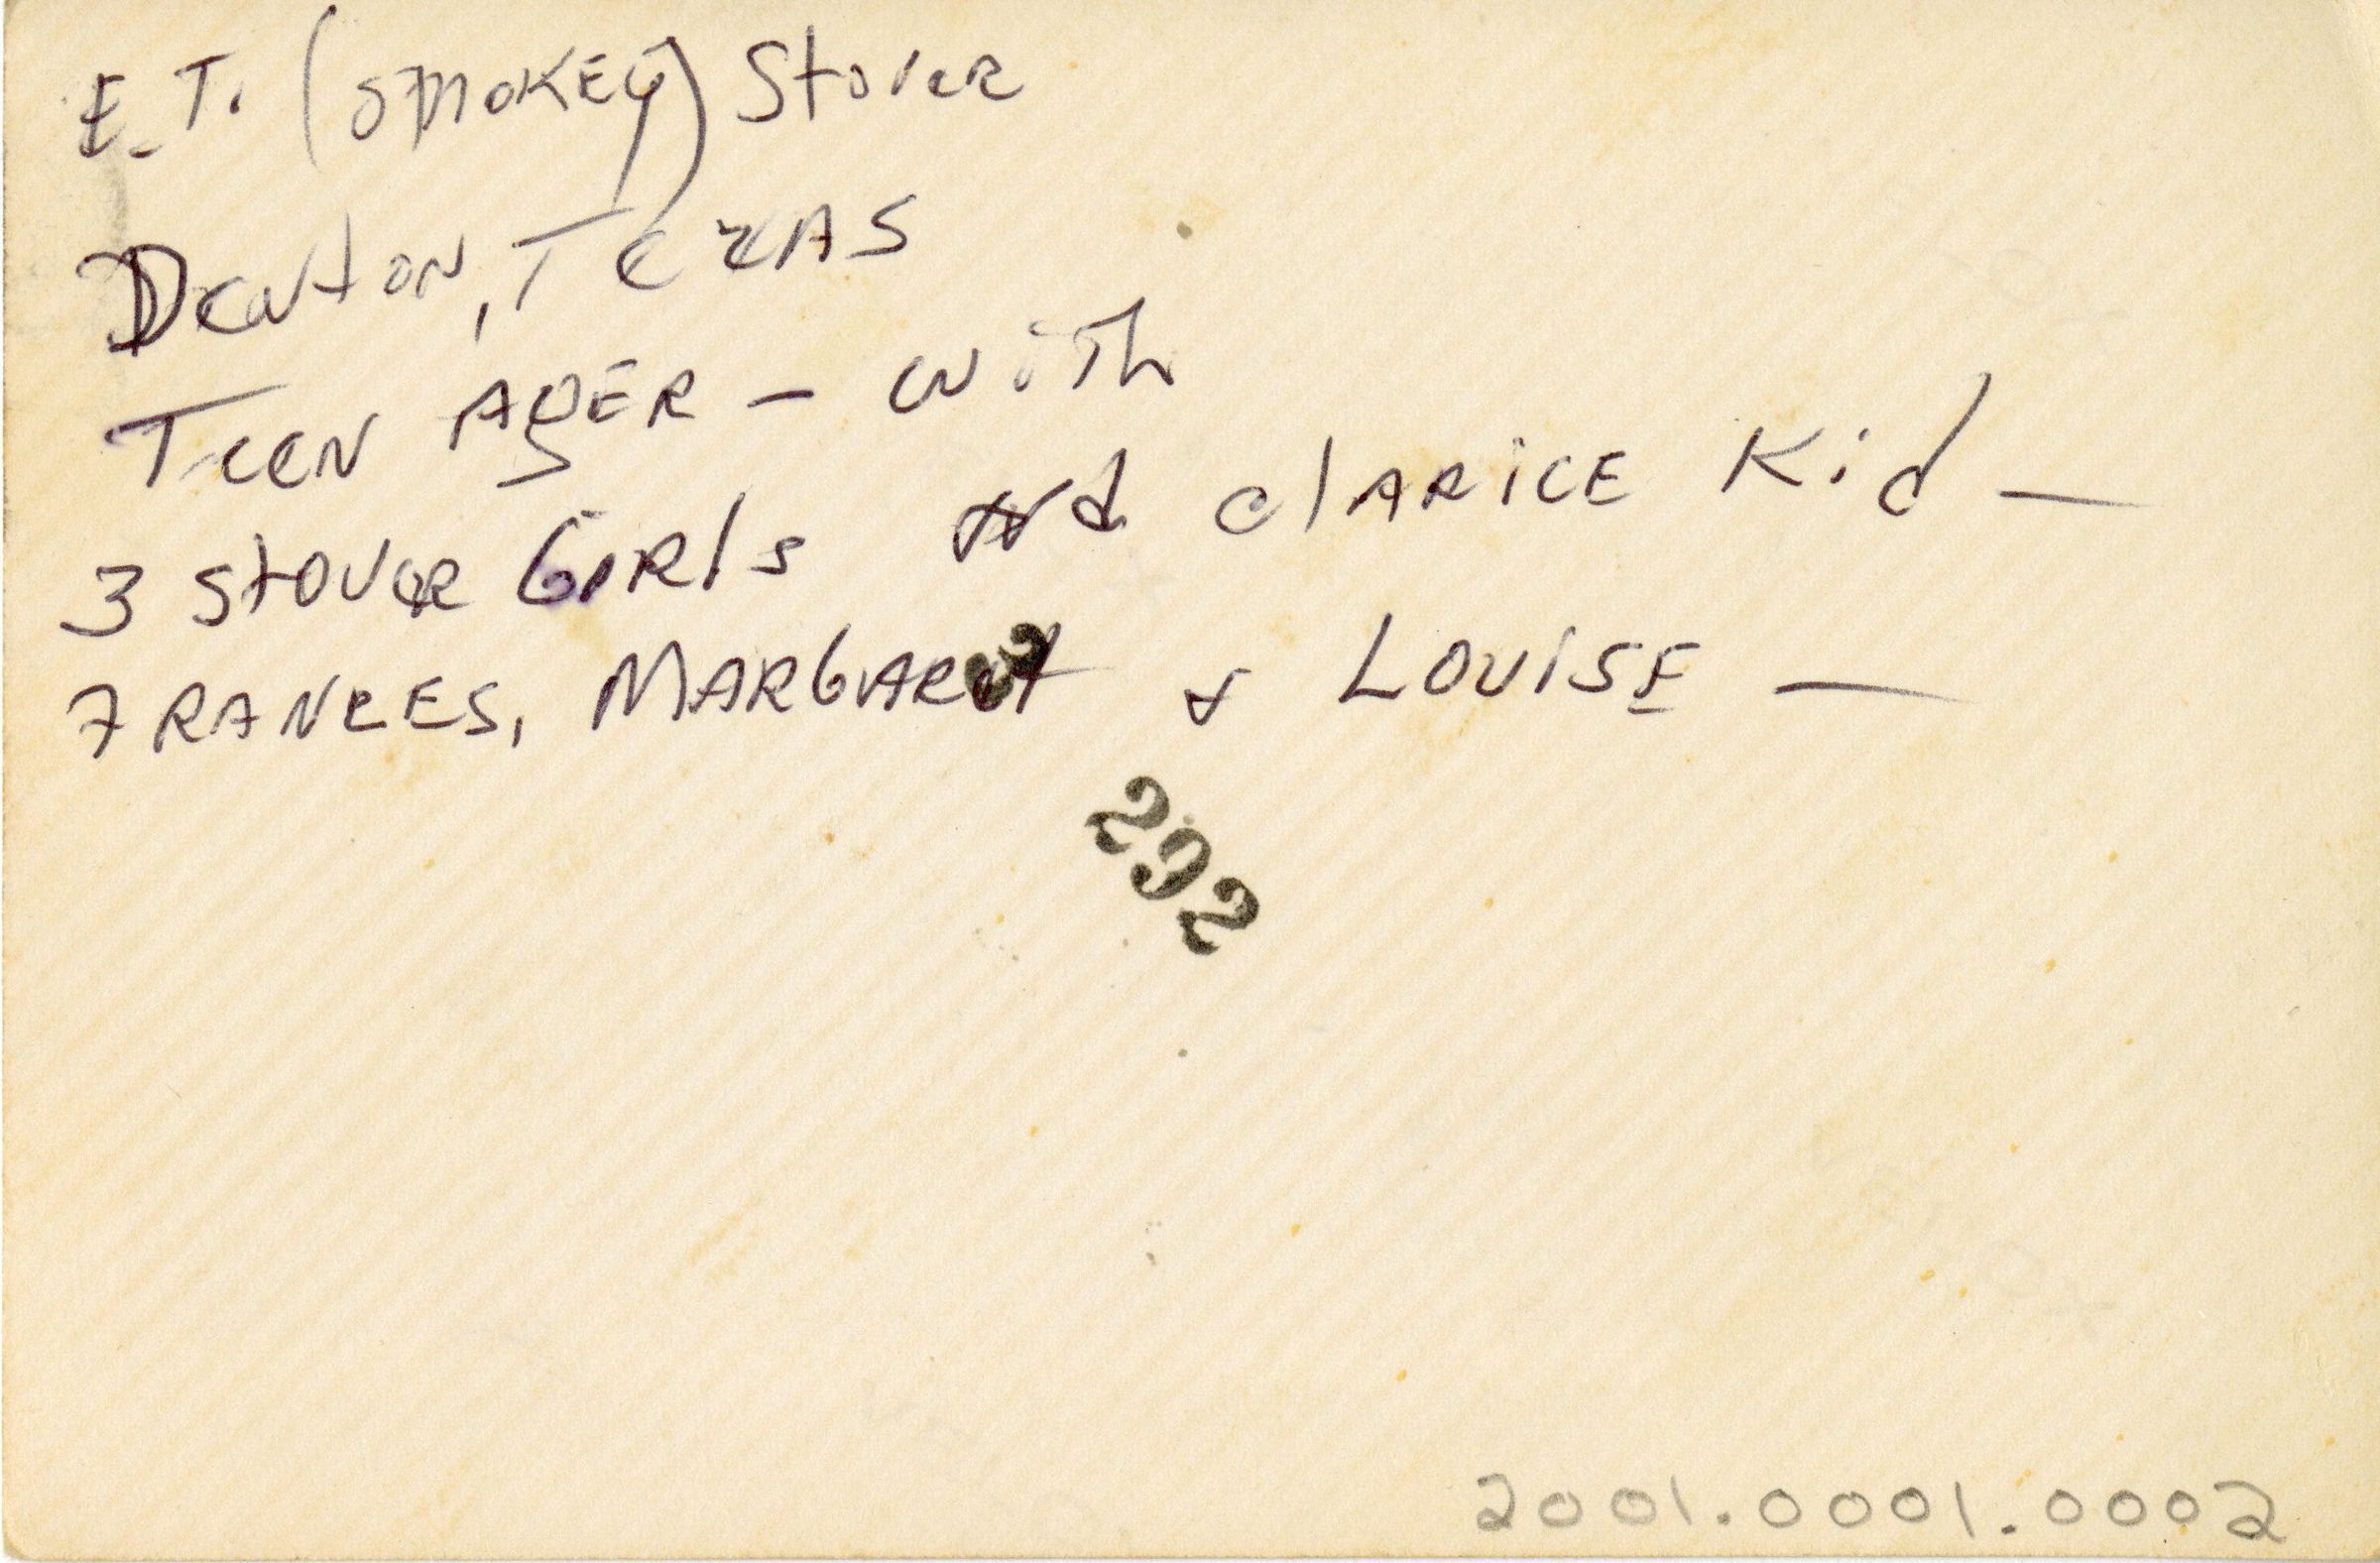 E.T. (SMOKEY) Stover
Denton, Texas
Teen AgER - with
3 Stover Girls and Clarice Kid —
FRANCES, MARGARet & LOUISE —
292
2001.0001.0002